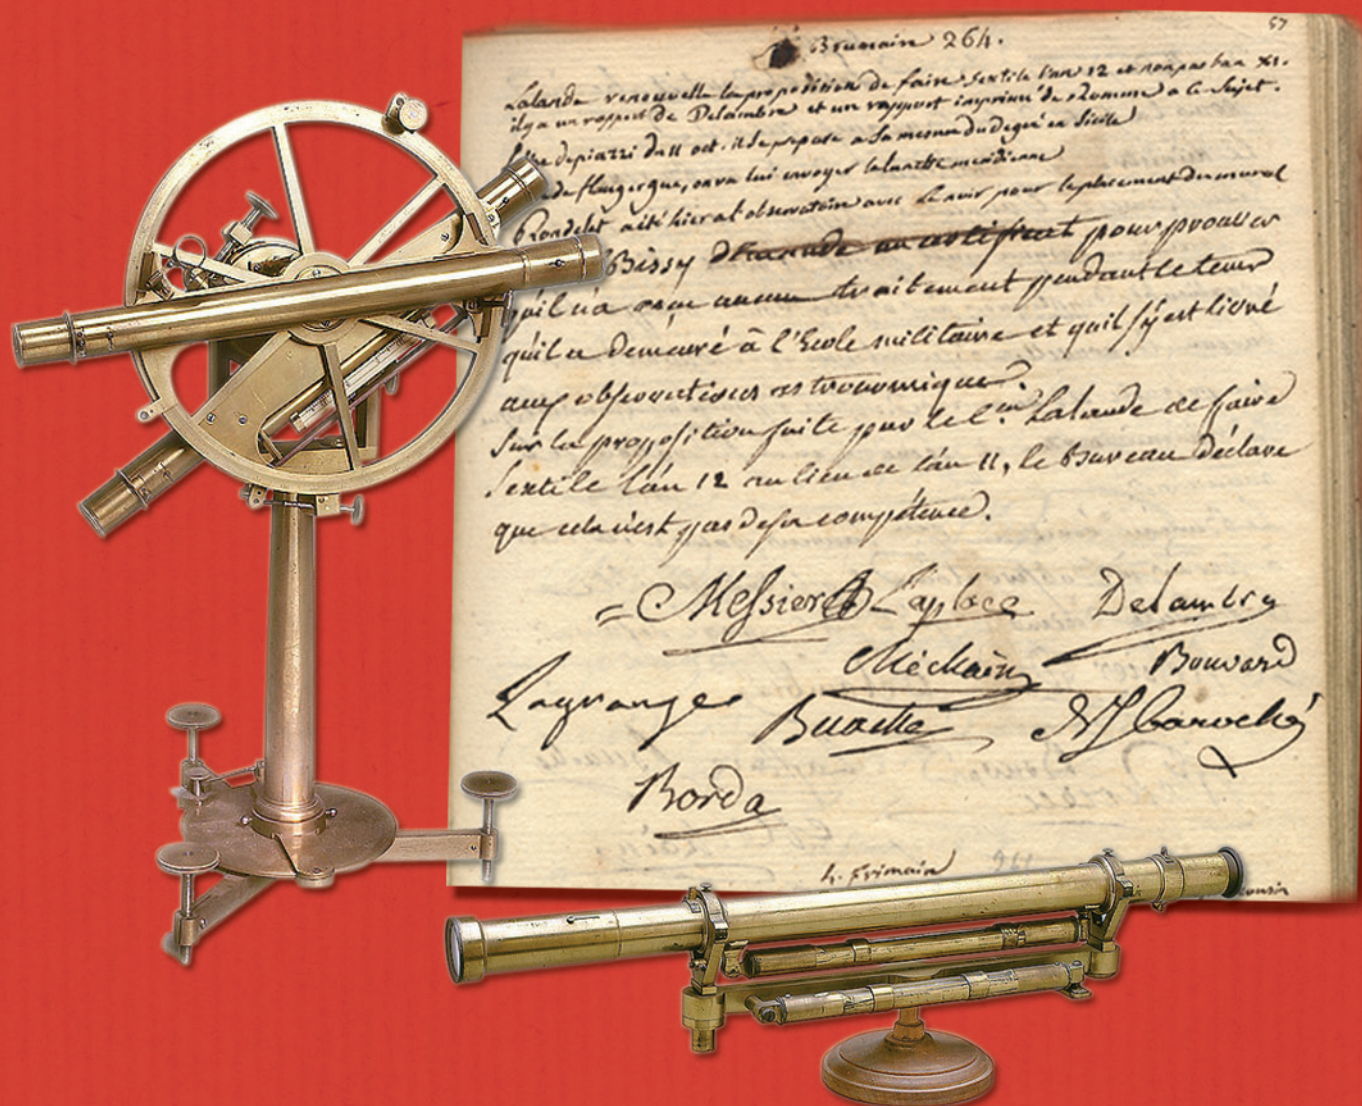 57
Brumaire 264.
Lalande renouvelle la proposition de faire sextile l'an 12 et non pas l'an XI.
il y a un rapport de Delambre et un rapport imprimé de Romme a ce sujet.
de piazzi du 11 oct. il se prepare a la mesure du degré en Sicile
de flaugergues, on va lui envoyer la lunette meridienne
Rondelet a été hier a l'observatoire avec Lenoir pour le placement du mural
Bissy demande un certificat pour prouver
qu'il n'a reçu aucun traitement pendant le tems
qu'il a demeuré à l'Ecole militaire et qu'il s'y est livré
aux observations astronomiques.
Sur la proposition faite par le C.en Lalande de faire
Sextile l'an 12 au lieu de l'an 11, le bureau déclare
que cela n'est pas de sa compétence.
Messier Laplace Delambre
Méchain Bouvard
Lagrange Buache
Borda
4. frimaire